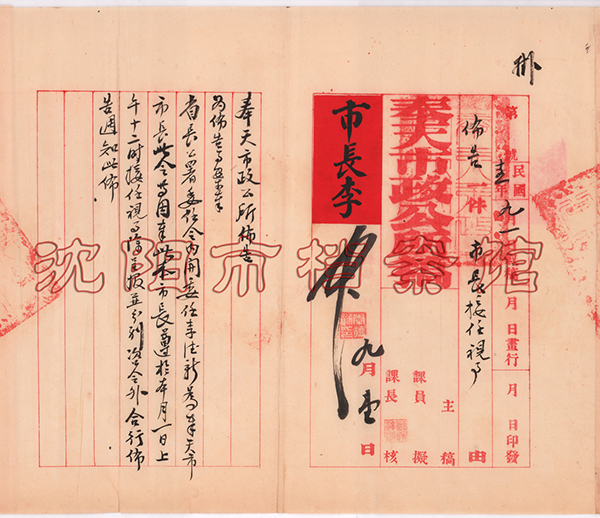 卅
第 號
民國 年 月 日畫行 月 日印發
壹 九 一
佈告一件 市長接任視事 由
奉天市政公所稿
主稿
課員 擬
課長 核
市長李
九月壹日
奉天市政公所佈告
為佈告事案奉
省長公署委任令內開委任李德新為奉天市
市長此令等因奉此本市長遵於本月一日上
午十二時接任視事除呈報並分別咨令外合行佈
告週知此佈
沈阳市档案馆